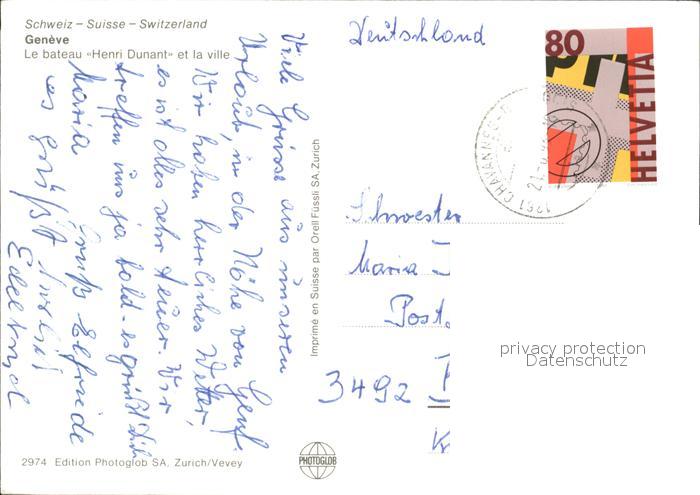 Schweiz – Suisse – Switzerland
Genève
Le bateau «Henri Dunant» et la ville
Viele Grüsse aus unseren
Urlaub, in der Nähe von Genf.
Wir haben herrliches Wetter,
es ist alles sehr teuer. Wir
treffen uns ja bald - es grüßt dich
Maria Gruß Elfriede
es grüßt
Edeltrud
2974 Edition Photoglob SA, Zurich/Vevey
Imprimé en Suisse par Orell Füssli SA, Zurich
PHOTOGLOB
Deutschland
80
HELVETIA
1261 CHAVANNES
Schwester
Maria
Post
3492
privacy protection
Datenschutz